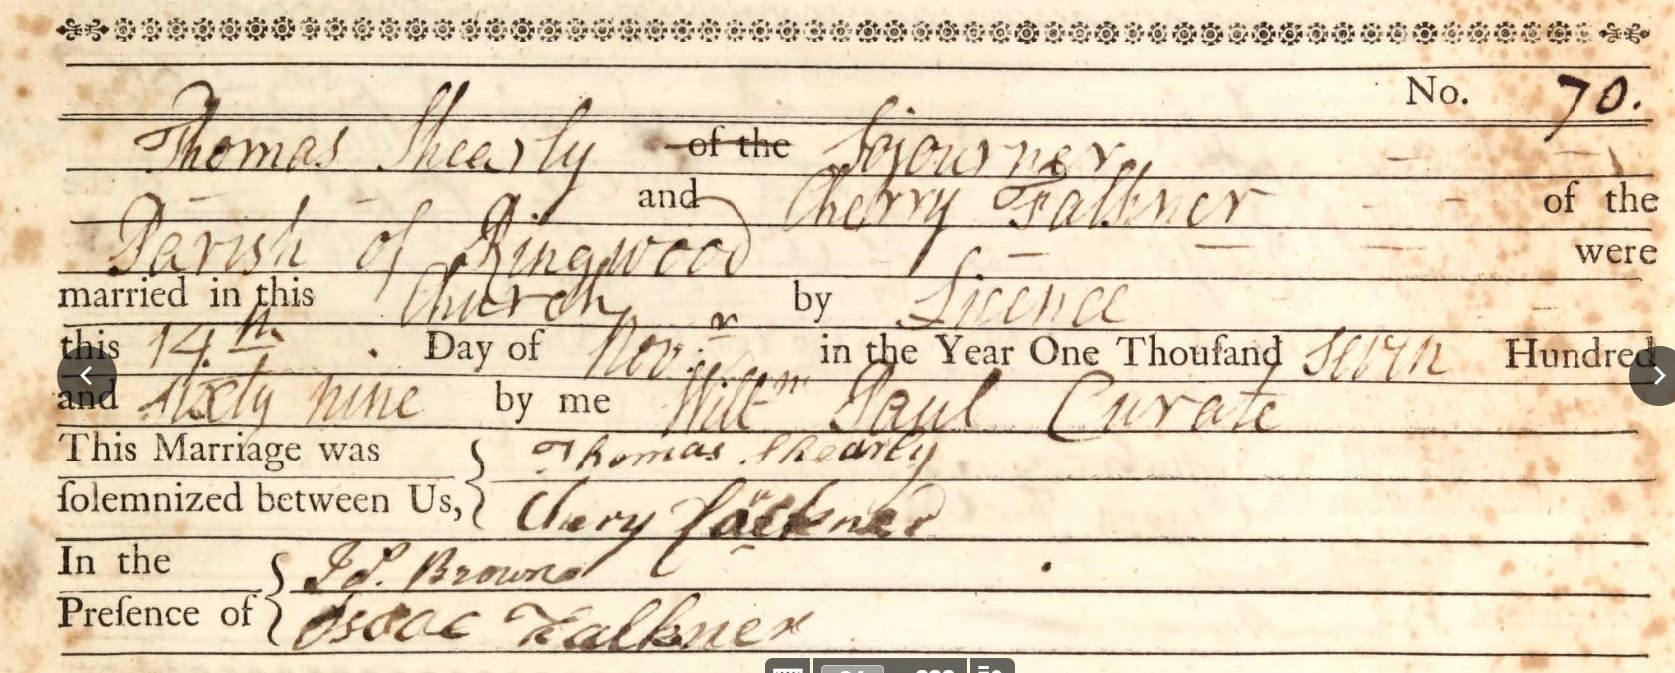 No. 70.
Thomas Shearly of the Sojourner
and Cherry Falkner of the
Parish of Ringwood were
married in this Church by Licence
this 14.th Day of Nov.r in the Year One Thouſand Seven Hundred
and sixty nine by me Willm Paul Curate
This Marriage was Thomas Shearly
ſolemnized between Us, Chery falkner
In the Jd. Browne
Preſence of Isaac Falkner